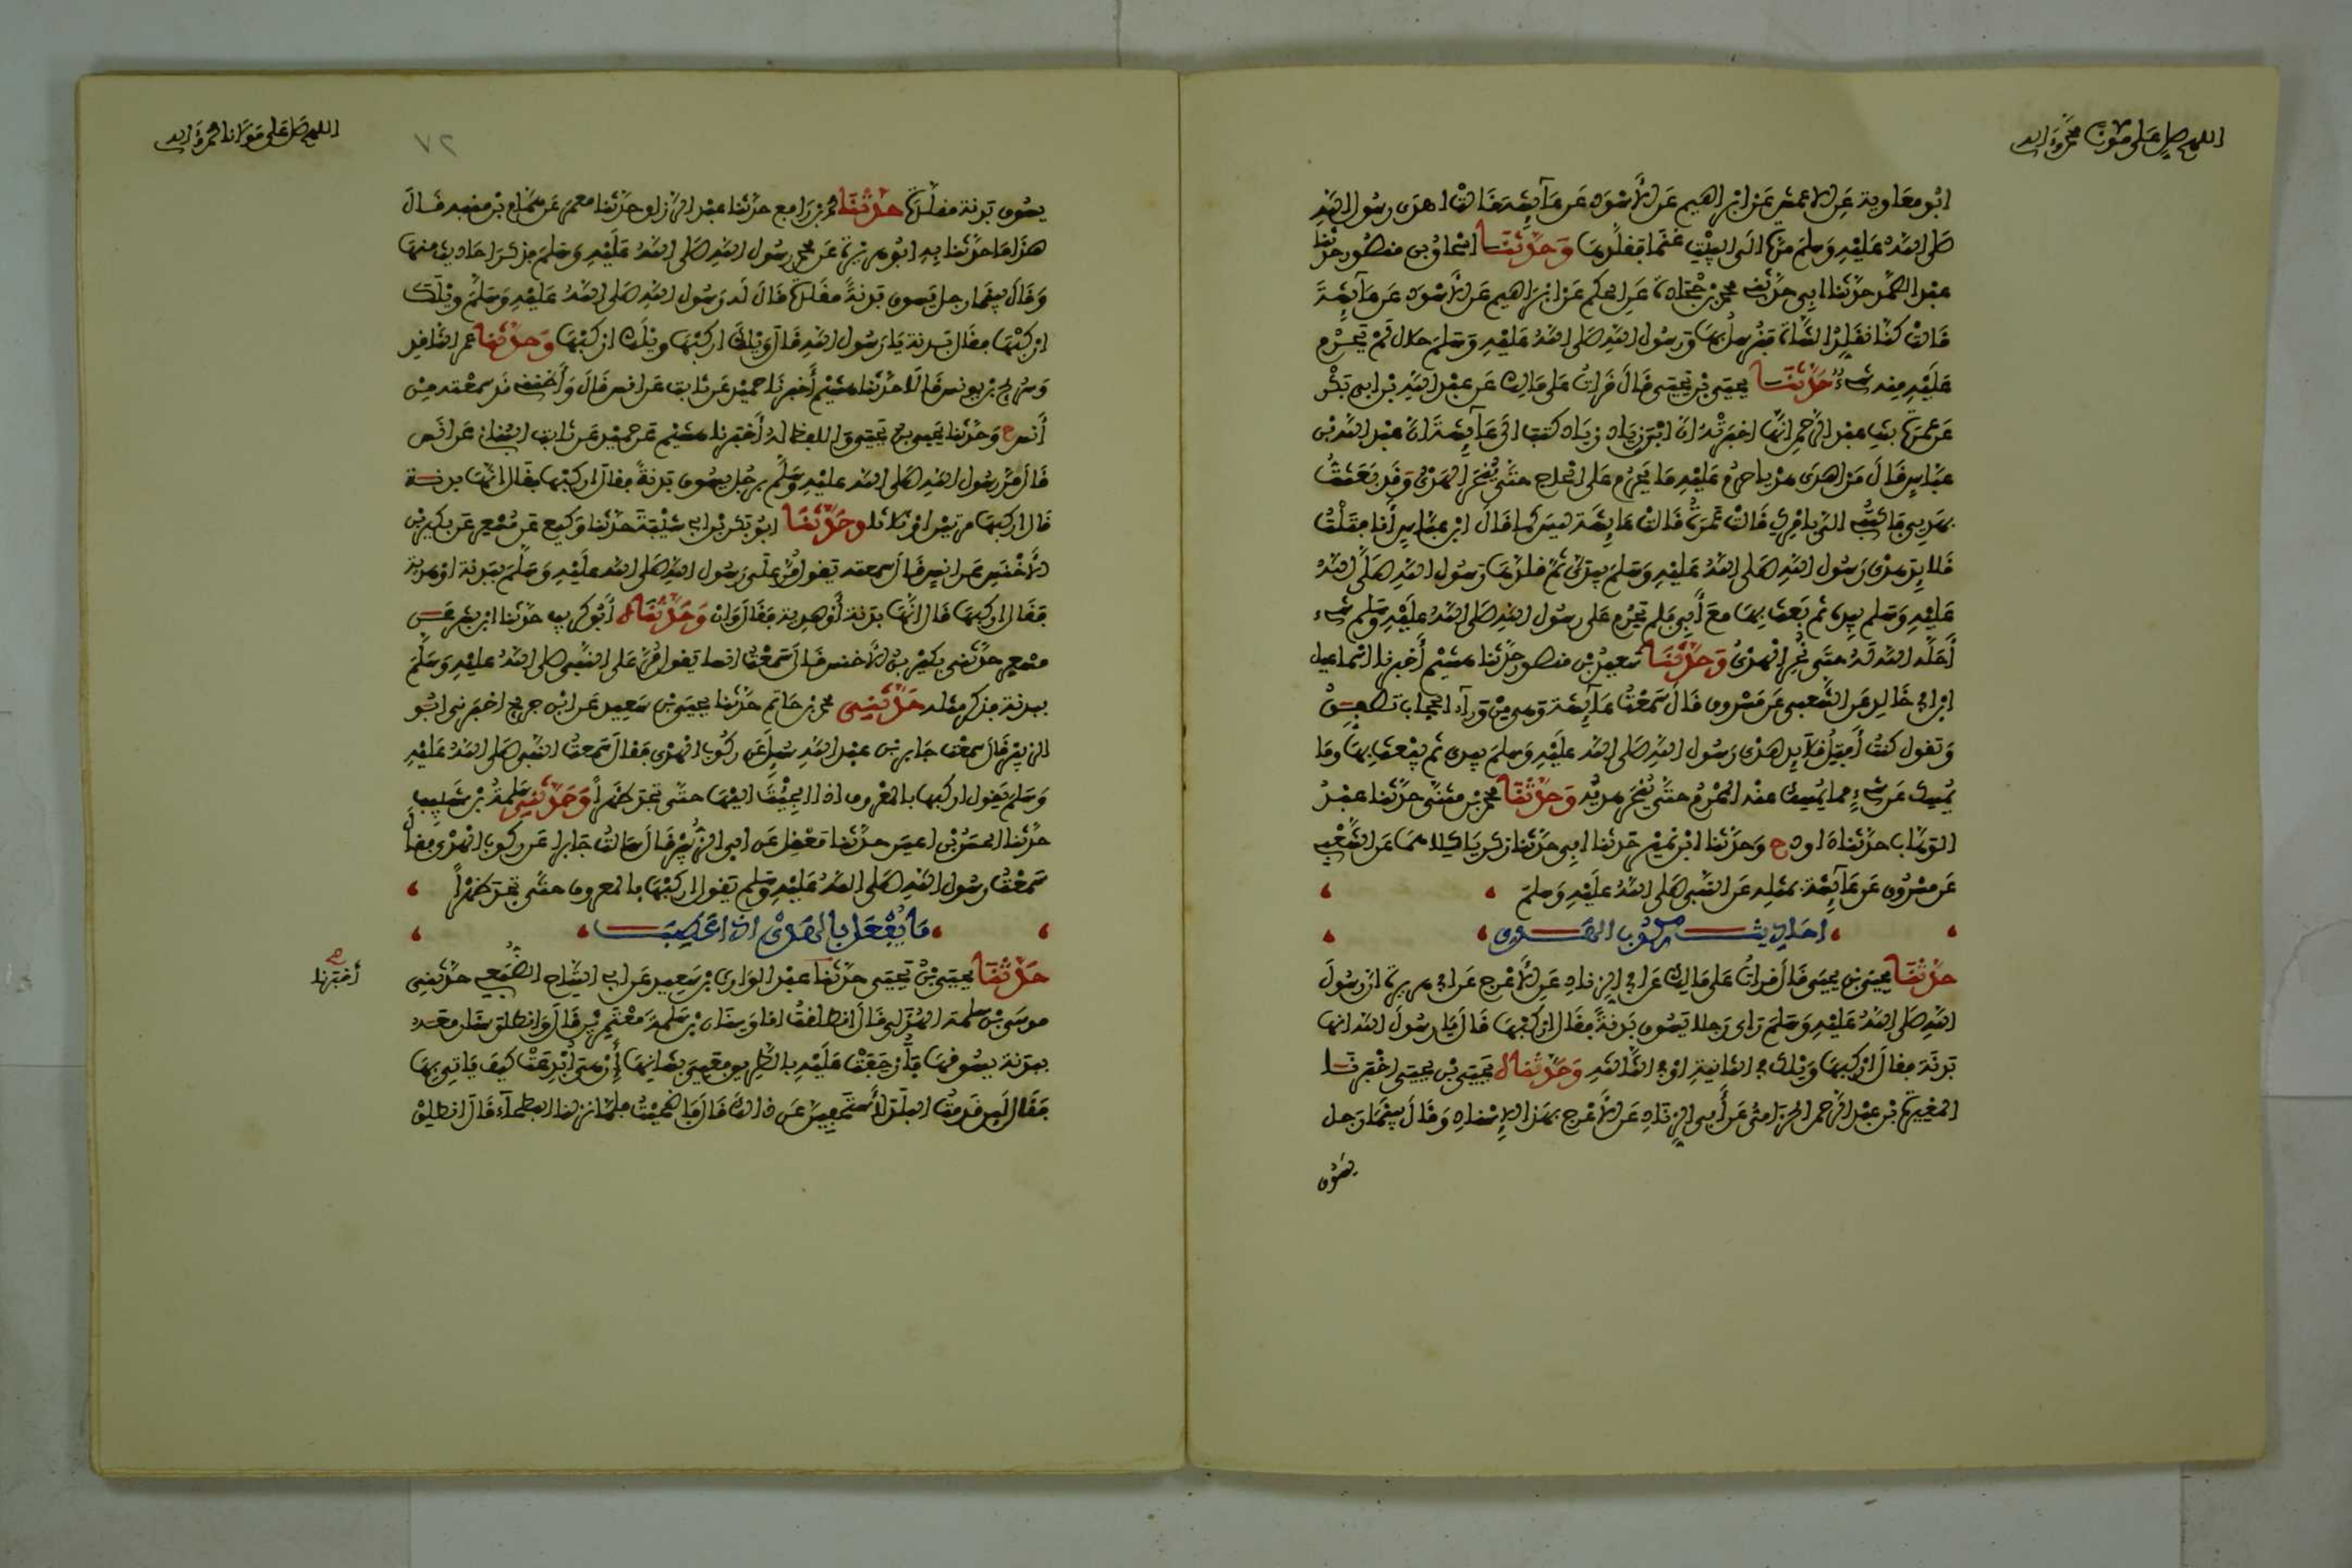 اللهم صل على مولانا محمد وآله
أبو معاوية عن الأعمش عن إبراهيم عن الأسود عن عائشة قالت أهدى رسول الله
صلى الله عليه وسلم مرة إلى البيت غنما فقلدها وحدثنا إسحاق بن منصور حدثنا
عبد الصمد حدثنا أبي حدثني محمد بن جحادة عن الحكم عن إبراهيم عن الأسود عن عائشة
قالت كنا نقلد الشاة فيرسل بها ورسول الله صلى الله عليه وسلم حلال لم يحرم
عليه منه شيء حدثنا يحيى بن يحيى قال قرأت على مالك عن عبد الله بن أبي بكر
عن عمرة بنت عبد الرحمن أنها أخبرته أن ابن زياد كتب إلى عائشة أن عبد الله بن
عباس قال من أهدى هديا حرم عليه ما يحرم على الحاج حتى ينحر الهدي وقد بعثت
بهديي فاكتبي إلي بأمرك قالت عمرة قالت عائشة ليس كما قال ابن عباس أنا فتلت
قلائد هدي رسول الله صلى الله عليه وسلم بيدي ثم قلدها رسول الله صلى الله
عليه وسلم بيده ثم بعث بها مع أبي فلم يحرم على رسول الله صلى الله عليه وسلم شيء
أحله الله له حتى نحر الهدي وحدثنا سعيد بن منصور حدثنا هشيم أخبرنا إسماعيل
ابن أبي خالد عن الشعبي عن مسروق قال سمعت عائشة وهي من وراء الحجاب تصفق
وتقول كنت أفتل قلائد هدي رسول الله صلى الله عليه وسلم بيدي ثم يبعث بها وما
يمسك عن شيء مما يمسك عنه المحرم حتى ينحر هديه وحدثنا محمد بن مثنى حدثنا عبد
الوهاب حدثنا داود ح وحدثنا ابن نمير حدثنا أبي حدثنا زكرياء كلاهما عن الشعبي
عن مسروق عن عائشة بمثله عن النبي صلى الله عليه وسلم
أحاديث ركوب الهدي
حدثنا يحيى بن يحيى قال قرأت على مالك عن أبي الزناد عن الأعرج عن أبي هريرة أن رسول
الله صلى الله عليه وسلم رأى رجلا يسوق بدنة فقال اركبها قال يا رسول الله إنها
بدنة فقال اركبها ويلك في الثانية أو في الثالثة وحدثناه يحيى بن يحيى أخبرنا
المغيرة بن عبد الرحمن الحزامي عن أبي الزناد عن الأعرج بهذا الإسناد وقال بينما رجل
يسوق
اللهم صل على مولانا محمد وآله
٧٢
يسوق بدنة مقلدة حدثنا محمد بن رافع حدثنا عبد الرزاق حدثنا معمر عن همام بن منبه قال
هذا ما حدثنا به أبو هريرة عن محمد رسول الله صلى الله عليه وسلم فذكر أحاديث منها
وقال بينما رجل يسوق بدنة مقلدة قال له رسول الله صلى الله عليه وسلم ويلك
اركبها فقال بدنة يا رسول الله قال ويلك اركبها ويلك اركبها وحدثنا عمرو الناقد
وسريج بن يونس قالا حدثنا هشيم أخبرنا حميد عن ثابت عن أنس قال وأظنني قد سمعته من
أنس ح وحدثنا يحيى بن يحيى واللفظ له أخبرنا هشيم عن حميد عن ثابت البناني عن أنس
قال مر رسول الله صلى الله عليه وسلم برجل يسوق بدنة فقال اركبها فقال إنها بدنة
قال اركبها مرتين أو ثلاثا وحدثنا أبو بكر بن أبي شيبة حدثنا وكيع عن مسعر عن بكير بن
الأخنس عن أنس قال سمعته يقول مر على رسول الله صلى الله عليه وسلم ببدنة أو هدية
فقال اركبها قال إنها بدنة أو هدية فقال وإن وحدثناه أبو كريب حدثنا ابن بشر عن
مسعر حدثني بكير بن الأخنس قال سمعت أنسا يقول مر على النبي صلى الله عليه وسلم
ببدنة فذكر مثله حدثني محمد بن حاتم حدثنا يحيى بن سعيد عن ابن جريج أخبرني أبو
الزبير قال سمعت جابر بن عبد الله سئل عن ركوب الهدي فقال سمعت النبي صلى الله عليه
وسلم يقول اركبها بالمعروف إذا ألجئت إليها حتى تجد ظهرا وحدثني سلمة بن شبيب
حدثنا الحسن بن أعين حدثنا معقل عن أبي الزبير قال سألت جابرا عن ركوب الهدي فقال
سمعت رسول الله صلى الله عليه وسلم يقول اركبها بالمعروف حتى تجد ظهرا
ما يفعل بالهدي إذا عطب
حدثنا يحيى بن يحيى حدثنا عبد الوارث بن سعيد عن أبي التياح الضبعي حدثني
أخبرنا
موسى بن سلمة الهذلي قال انطلقت أنا وسنان بن سلمة معتمرين قال وانطلق سنان معه
ببدنة يسوقها فأزحفت عليه بالطريق فعيي بشأنها إن هي أبدعت كيف يأتي بها
فقال لئن قدمت البلد لأستحفين عن ذلك قال فأضحيت فلما نزلنا البطحاء قال انطلق